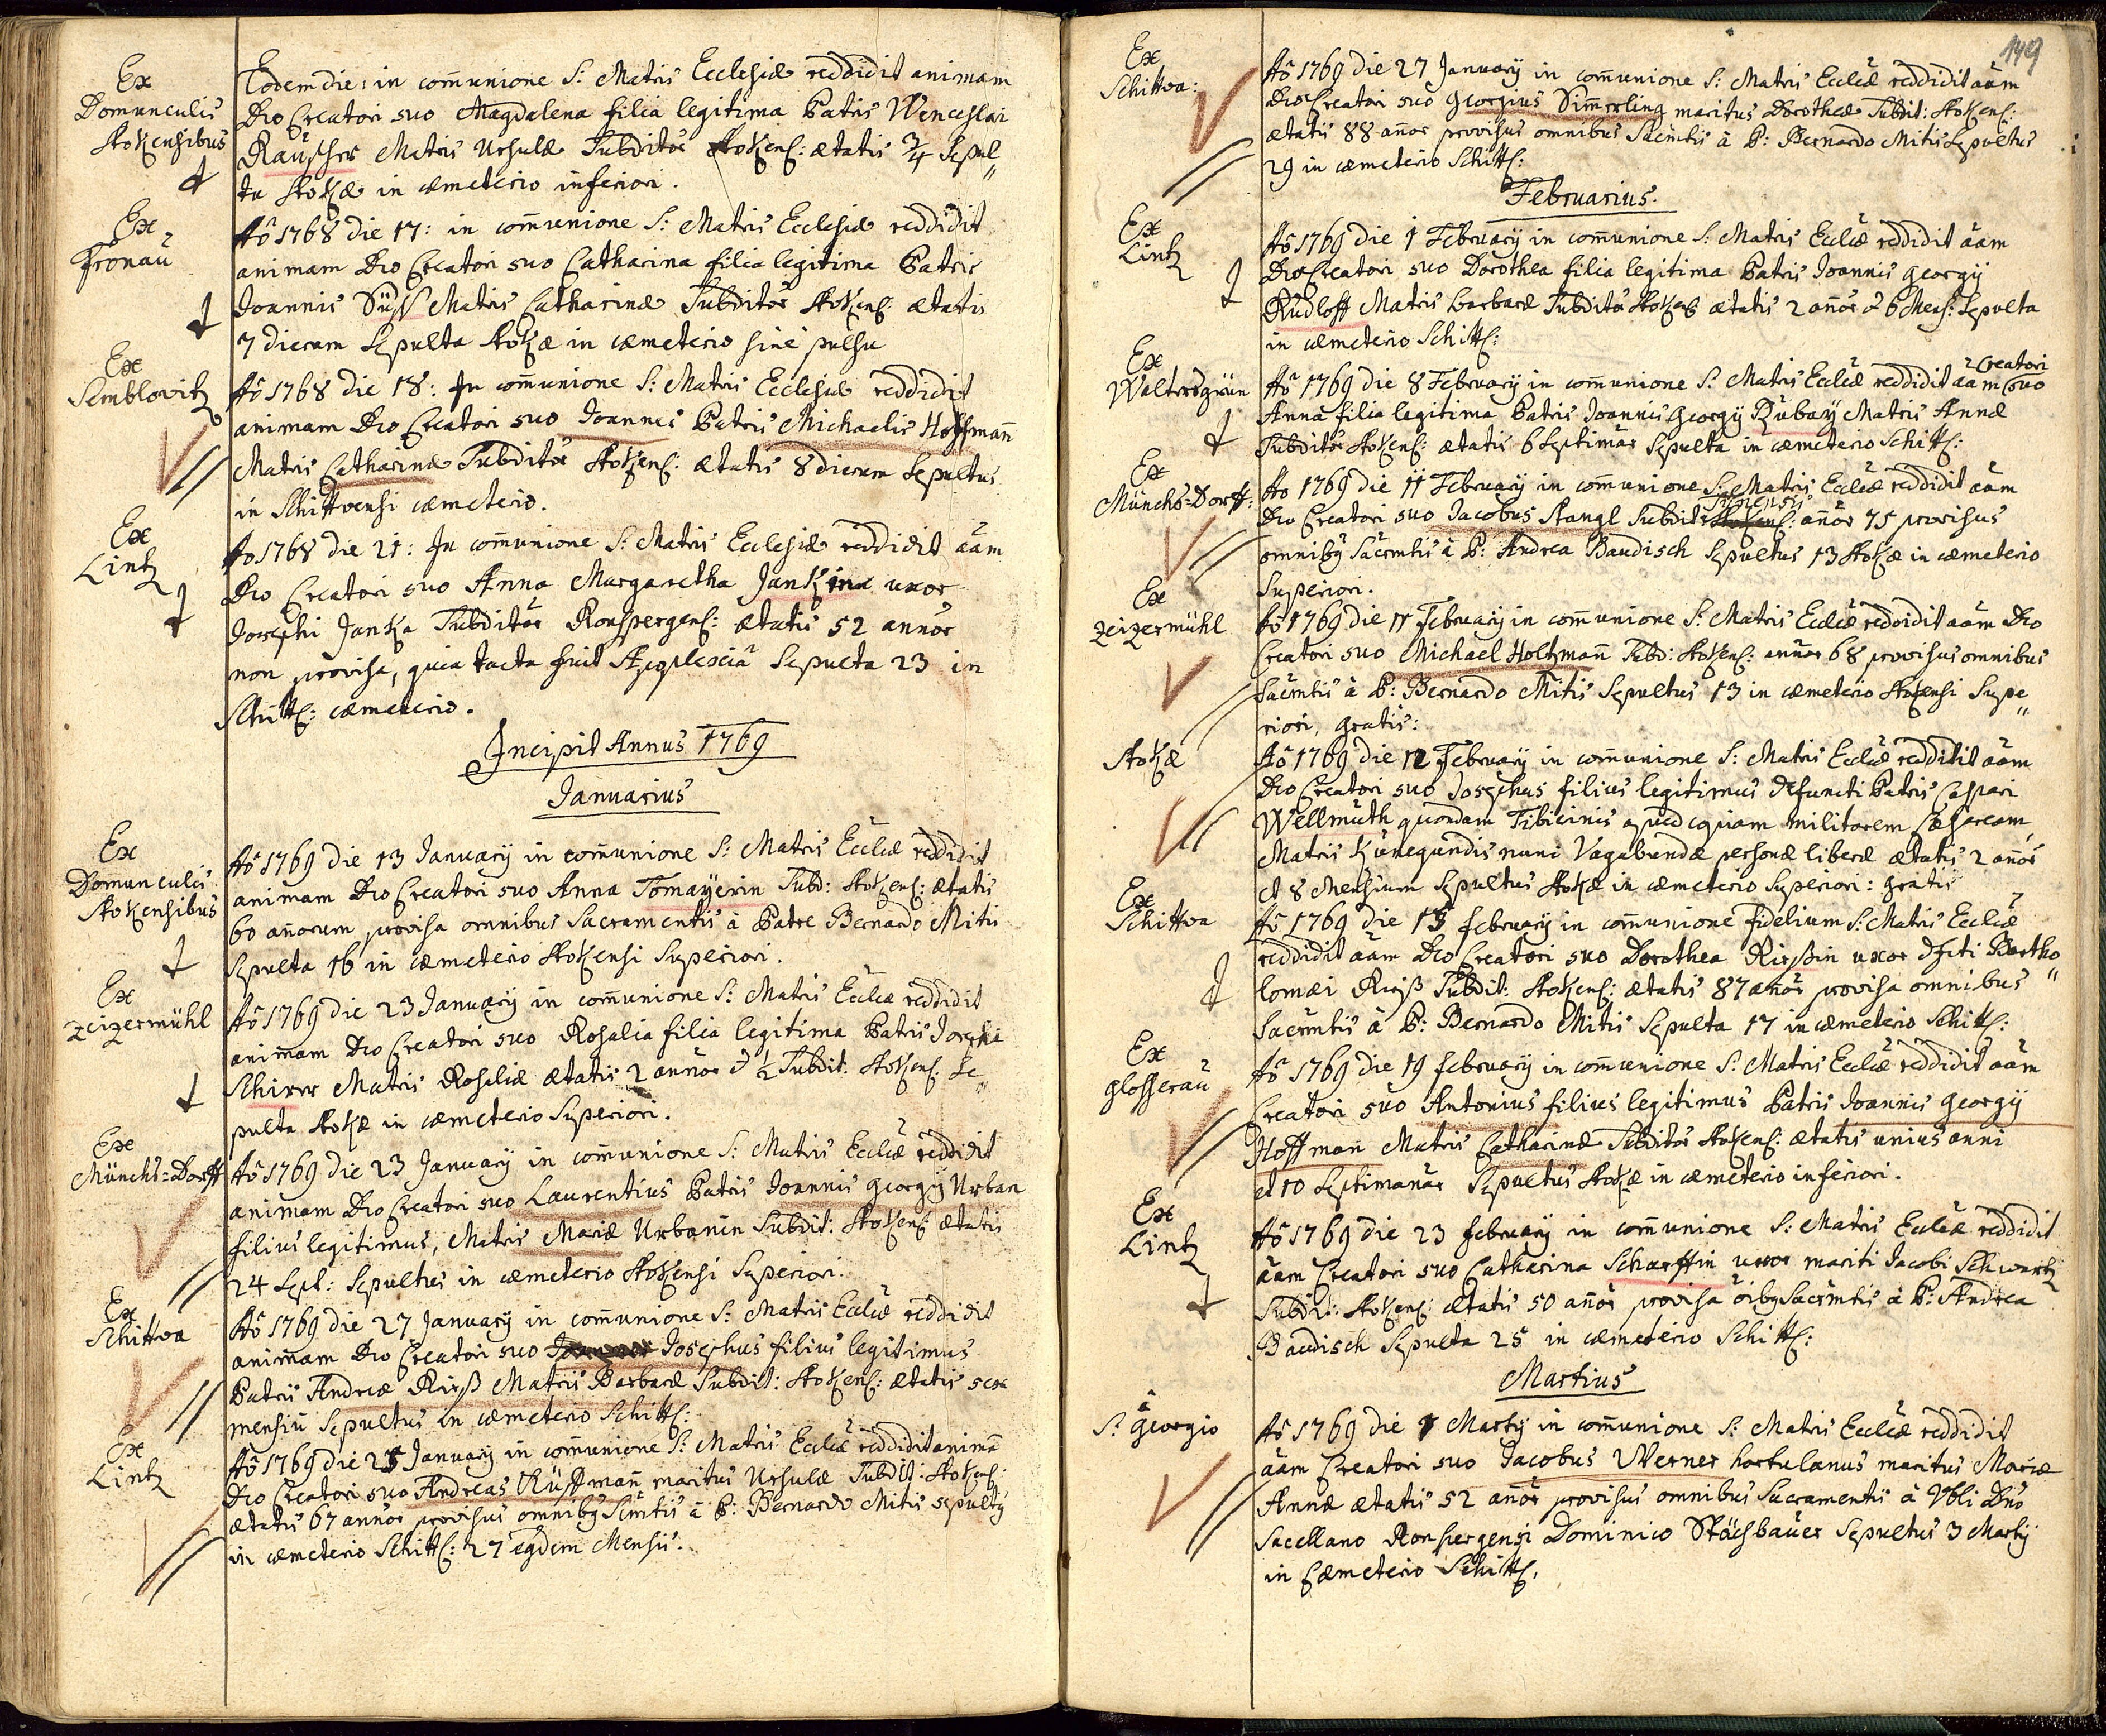 Ex
Domunculis
Stokensibus
Eodem die: in com̄unione S: Matris Ecclesiæ reddidit animam
Deo Creatori suo Magdalena filia legitima Patris Wenceslai
Räuscher Matris Ursulæ Subditor Stokens: ætatis 3/4 Sepul„
ta Stokæ in cæmeterio inferiori.
Ex
Fronau
Aô 1768 die 17: in com̄unione S: Matris Ecclesiæ reddidit
animam Deo Creatori suo Catharina filia legitima Patris
Joannis Süss Matris Catharinæ Subditor Stokens: ætatis
7 dierum Sepulta Stokæ in cæmeterio sine pulsu
Ex
Semblovitz
Aô 1768 die 18: In com̄unione S: Matris Ecclesiæ reddidit
animam Deo Creatori suo Joannes Patris Michaelis Hoffman̄
Matris Catharinæ Subditor Stokens: ætatis 8 dierum Sepultus
in Schittvensi cæmeterio.
Ex
Lintz
Ao 1768 die 21: In com̄unione S: Matris Ecclesiæ reddidit aam
Deo Creatori suo Anna Margaretha Jankina uxor
Josephi Janka Subditor Ronspergens: ætatis 52 annor
non provisa, quia tacta fuit Apoplexia Sepulta 23 in
Schitt: cæmeterio.
Incipit Annus 1769
Januarius
Ex
Domunculis
Stokensibus
Aô 1769 die 13 January in com̄unione S: Matris Eccliæ reddidit
animam Deo Creatori suo Anna Tomayerin Subd: Stokens: ætatis
60 an̄orum provisa omnibus Sacramentis à Patre Bernardo Mitis
Sepulta 16 in cæmeterio Stokensi Superiori.
Ex
Zeizermühl
Aô 1769 die 23 January in com̄unione S: Matris Eccliæ reddidit
animam Deo Creatori suo Rosalia filia legitima Patris Josephi
Schirer Matris Rosaliæ ætatis 2 annor & 1/2 Subdit: Stokens: Se„
pulta Stokæ in cæmeterio Superiori.
Ex
Münchs=Dorff
Aô 1769 die 23 January in com̄unione S: Matris Eccliæ reddidit
animam Deo Creatori suo Laurentius Patris Joannis Georgij Urban
filius legitimus, Matris Mariæ Urbanin Subdit: Stokens: ætatis
24 Sept: Sepultus in cæmeterio Stokensi Superiori.
Ex
Schittwa
Aô 1769 die 27 January in com̄unione S: Matris Eccliæ reddidit
animam Deo Creatori suo Josephus filius legitimus
Patris Andreæ Rirß Matris Barbaræ Subdit: Stokens: ætatis sex
mensiū Sepultus in cæmeterio Schitts:
Ex
Lintz
Aô 1769 die 25 January in com̄unione S: Matris Eccliæ reddidit animā
Deo Creatori suo Andreas Rüssman̄ maritus Ursulæ Subdit: Stokens:
ætatis 67 annor provisus omnibg Scmtis à P: Bernardo Mitis sepultg
in cæmeterio Schitts: 27 egdem Mensis.
149
Ex
Schittva:
Aô 1769 die 27 January in com̄unione S: Matris Eccliæ reddidit aam
Deo Creatori suo Georgius Simmerling maritus Dorotheæ Subdit: Stokens:
ætatis 88 an̄or provisus omnibus Sacmtis à P: Bernardo Mitis Sepultus
29 in cæmeterio Schitts:
Februarius.
Ex
Lintz
Aô 1769 die 1 February in com̄unione S: Matris Eccliæ reddidit aam
Deo Creatori suo Dorothea filia legitima Patris Joannis Georgij
Rudloff Matris Barbaræ Subditor Stokens ætatis 2 an̄or & 6 Mens: Sepulta
in cæmeterio Schitts:
Ex
Waltersgrün
Aô 1769 die 8 February in com̄unione S: Matris Eccliæ reddidit aam Creatori suo
Anna filia legitima Patris Joannis Georgij Rubaÿ Matris Annæ
Subditor Stokens: ætatis 6 Septimar Sepulta in cæmeterio Schitts:
Ex
Münchs=Dorff:
Ao 1769 die 11 February in com̄unione S: Matris Eccliæ reddidit aam
Deo Creatori suo Jacobus Stangl Subdit: an̄or 75 provisus
omnibg Sacrmtis à P: Andrea Baudisch Sepultus 13 Stokæ in cæmeterio
Superiori.
Ex
Zeizermühl
Aô 1769 die 11 February in com̄unione S: Matris Eccliæ reddidit aam Deo
Creatori suo Michael Holtzman̄ Subd: Stokens: annor 68 provisus omnibus
Sacrmtis à P: Bernardo Mitis Sepultus 13 in cæmeterio Stokensi Supe„
riori, gratis:
Stokæ
Aô 1769 die 12 February in com̄unione S: Matris Eccliæ reddidit aam
Deo Creatori suo Josephus filius legitimus defuncti Patris Caspari
Wellmuth quondam Tibicinis apud copiam militarem Cæsaream
Matris Kunegundis nunc Vagabundæ personæ liberæ ætatis 2 an̄or
et 8 Mensium Sepultus Stokæ in cæmeterio Superiori: gratis
Ex
Schittva
Aô 1769 die 15 february in com̄unione fidelium S: Matris Eccliæ
reddidit aam Deo Creatori suo Dorothea Rirßin uxor dfcti Bartho„
lomæi Rirß Subdit: Stokens: ætatis 87 an̄or provisa omnibus
Sacrmtis à P: Bernardo Mitis Sepulta 17 in cæmeterio Schitts:
Ex
Glosserau
Aô 1769 die 19 february in com̄unione S: Matris Eccliæ reddidit aam
Creatori suo Antonius filius legitimus Patris Joannis Georgij
Hoffman Matris Catharinæ Subditor Stokens: ætatis unius anni
et 10 Septimanar Sepultus Stokæ in cæmeterio inferiori.
Ex
Lintz
Aô 1769 die 23 february in com̄unione S: Matris Eccliæ reddidit
aam Creatori suo Catharina Scharffin uxor mariti Jacobi Schwartz
Subdit: Stokens: ætatis 50 an̄or provisa oibg Sacrmtis à P: Andrea
Baudisch Sepulta 25 in cæmeterio Schitts:
Martius
à
S: Georgio
Aô 1769 die 1 Martij in com̄unione S: Matris Eccliæ reddidit
aam Creatori suo Jacobus Werner hortulanus maritus Mariæ
Annæ ætatis 52 an̄or provisus omnibus Sacramentis à Vbli Dno
Sacellano Ronspergensi Dominico Stächbauer Sepultus 3 Martij
in Cæmeterio Schitts.